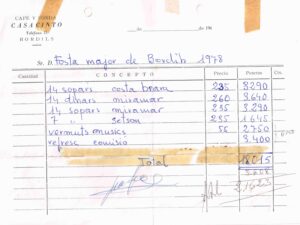 CAFÉ Y FONDA
CASACINTO
Teléfono
BORDILS
de de 196
Sr. D. Festa major de Bordils 1978
Cantidad CONCEPTO Precio Pesetas
14 sopars costa brava 235 3290
14 dinars miramar 260 3640
14 sopars miramar 235 3290
7 " setson 235 1645
vermuts musics 55 2750
refresc comisio 3.400
Total 18015
3608
21623